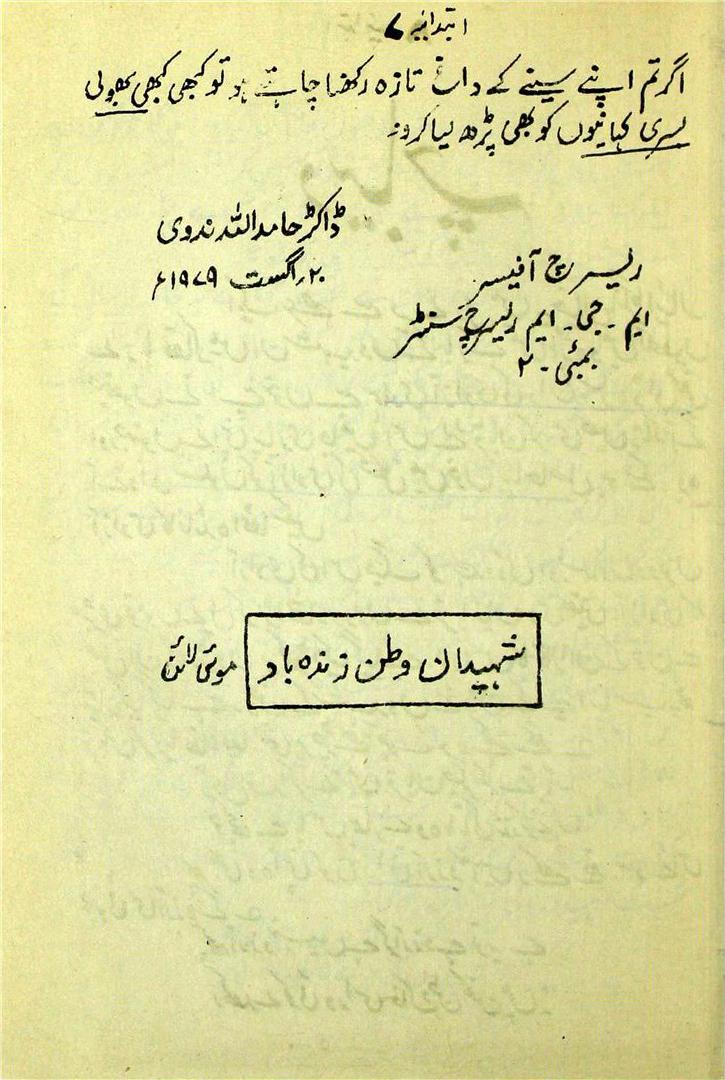 ابتدائیہ ۷
اگر تم اپنے سینے کے داغ تازہ رکھنا چاہتے ہو تو کبھی کبھی بھولی
بسری کہانیوں کو بھی پڑھ لیا کرو۔
ڈاکٹر حامد اللہ ندوی
۲۰ اگست ۱۹۷۹ء
ریسرچ آفیسر
ایم۔ جی۔ ایم ریسرچ سنٹر
بمبئی۔ ۲
شہیدان وطن زندہ باد موٹی لائن